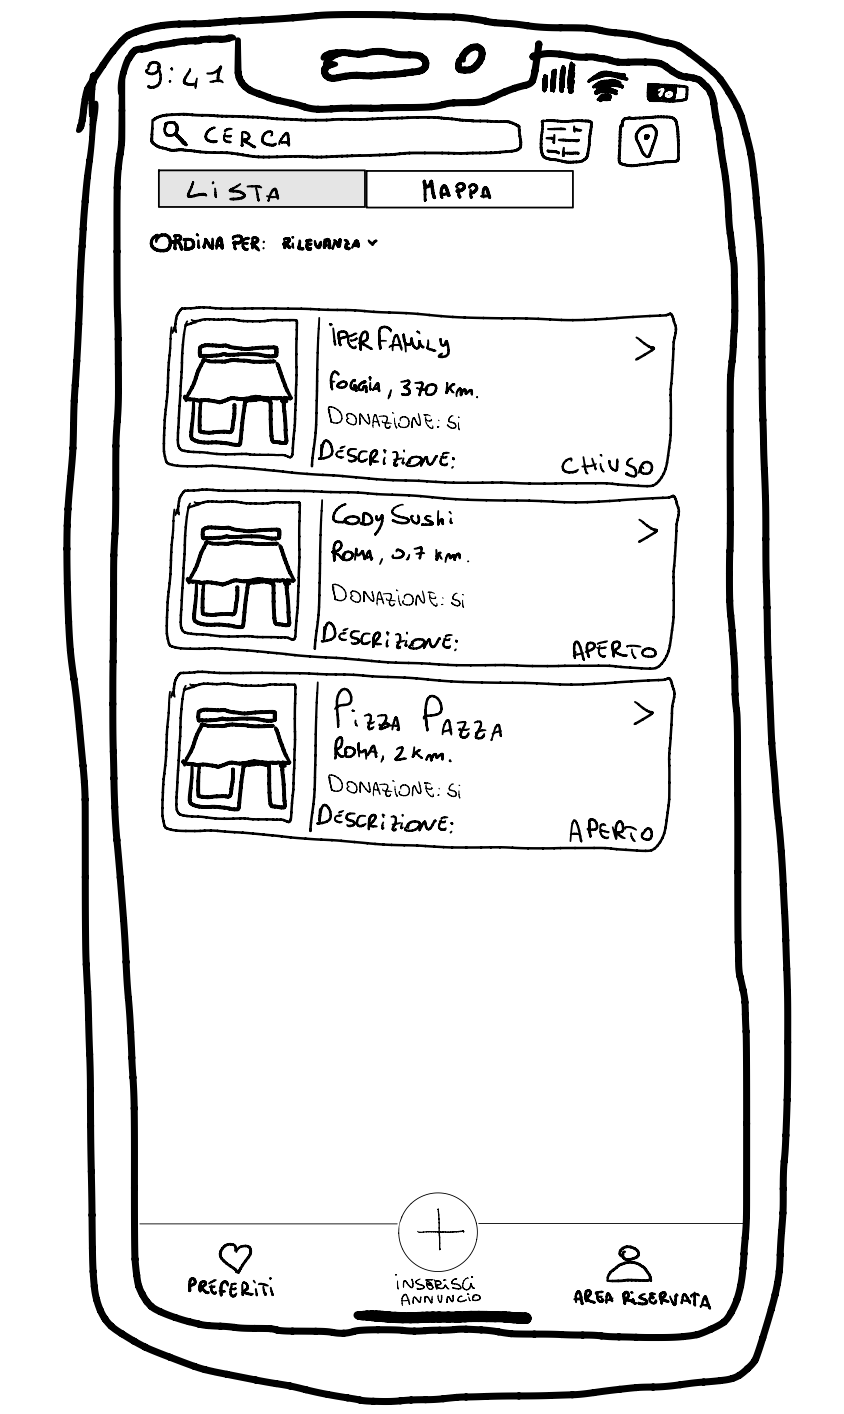 9:41
10
CERCA
LISTA MAPPA
ORDINA PER: RILEVANZA
IPER FAMILY
FOGGIA, 370 Km.
DONAZIONE: Si
DESCRIZIONE:
CHIUSO
CODY SUSHI
ROMA, 0,7 Km.
DONAZIONE: Si
DESCRIZIONE:
APERTO
PIZZA PAZZA
ROMA, 2 Km.
DONAZIONE: Si
DESCRIZIONE:
APERTO
PREFERITI
INSERISCI
ANNUNCIO
AREA RISERVATA